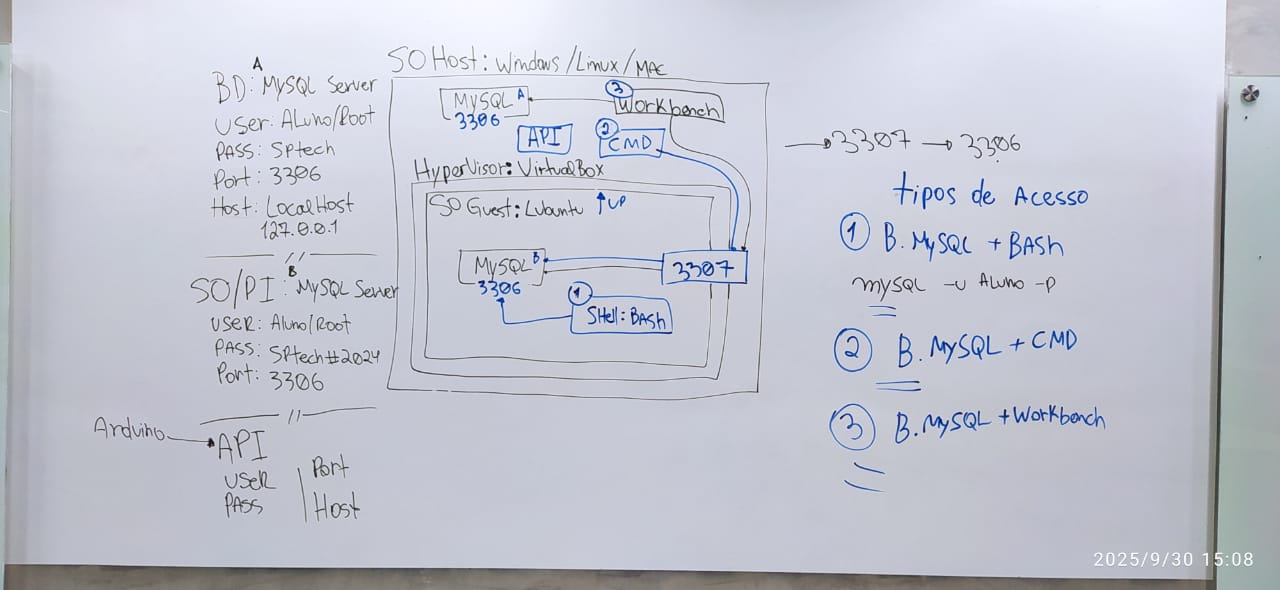 A
BD: MySQL Server
User: Aluno/Root
PASS: Sptech
Port: 3306
Host: LocalHost
127.0.0.1
//
B
SO/PI: MySQL Server
User: Aluno/Root
PASS: SPtech#2024
Port: 3306
//
Arduino
API
USER
PASS
Port
Host
SO Host: Windows/Linux/MAC
MySQL A
3306
3
Workbench
API
2
CMD
HyperVisor: VirtualBox
SO Guest: Lubuntu ↑UP
MySQL B
3306
3307
1
SHell: BASh
→3307 → 3306
tipos de Acesso
1 B. MySQL + BASh
mySQL -u Aluno -p
2 B. MySQL + CMD
3 B. MySQL + Workbench
2025/9/30 15:08